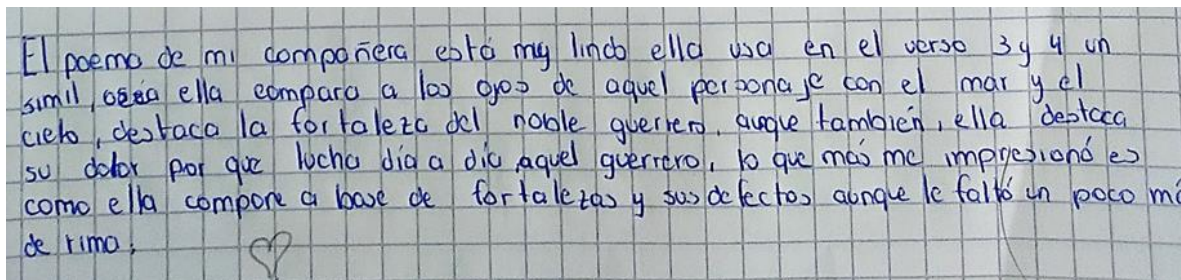 El poema de mi compañera está my lindo ella usa en el verso 3 y 4 un
simil, oséa ella compara a los ojos de aquel personaje con el mar y el
cielo, destaca la fortaleza del noble guerrero, auque también, ella destaca
su dolor por que lucha día a día aquel guerrero, lo que más me impresionó es
como ella compone a base de fortalezas y sus defectos aunque le faltó un poco má
de rima,